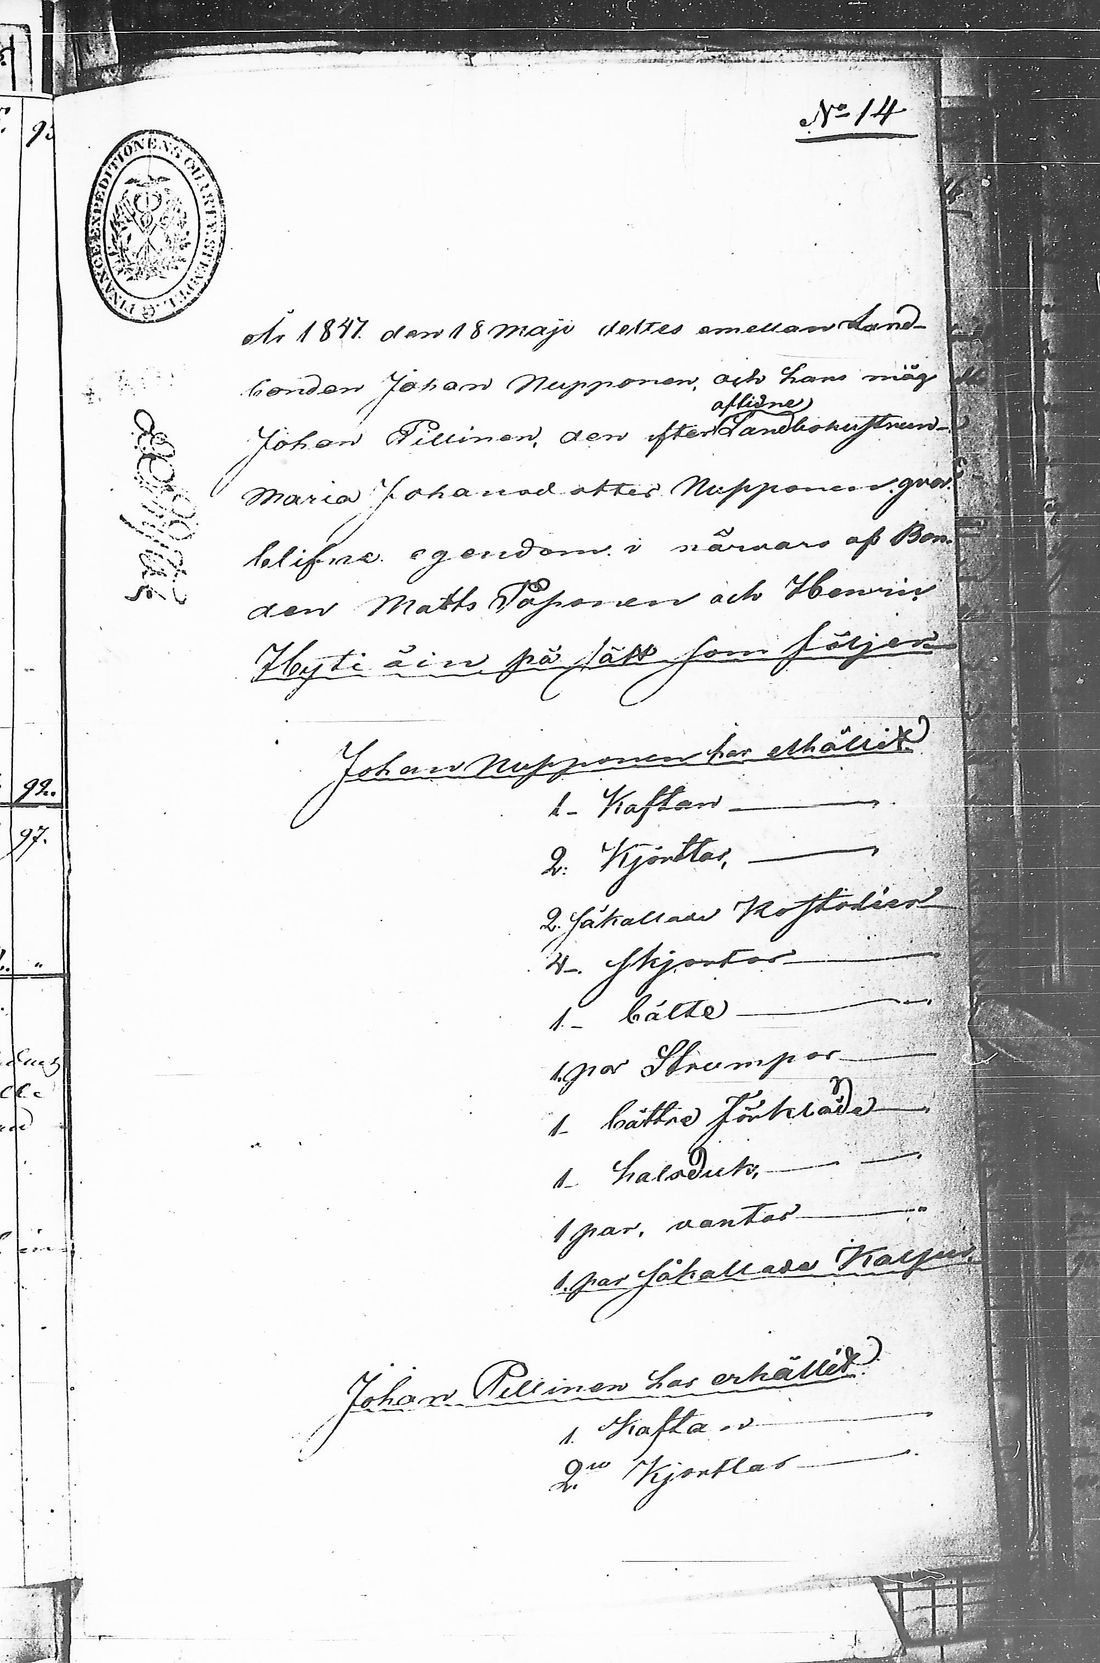 No 14
FINANCE EXPEDITIONENS CHARTÆ STEMPEL
År 1847. den 18 Maji deltes emellan Land-
bonden Johan Nupponen, och hans måg
Johan Pillinen, den efter aflidne Landbohustrun
Maria Johansdotter Nupponen qvar-
blifne egendom i närvaro af Bon-
den Matts Poponen och Henric
Hytiäin på sätt som följer
Johan Nupponen har erhållit
1- Kaftan
2. Kjortlar,
2. såkallade Kostolier
4- skjortor
1- bälte
1. par Strumpor
1- bättre Förkläde
1- halsduk,
1 par, vantar
1. par såkallade Kaljus.
Johan Pillinen har erhållit
1. Kaftan
2. Kjortlar
93
92..
97.